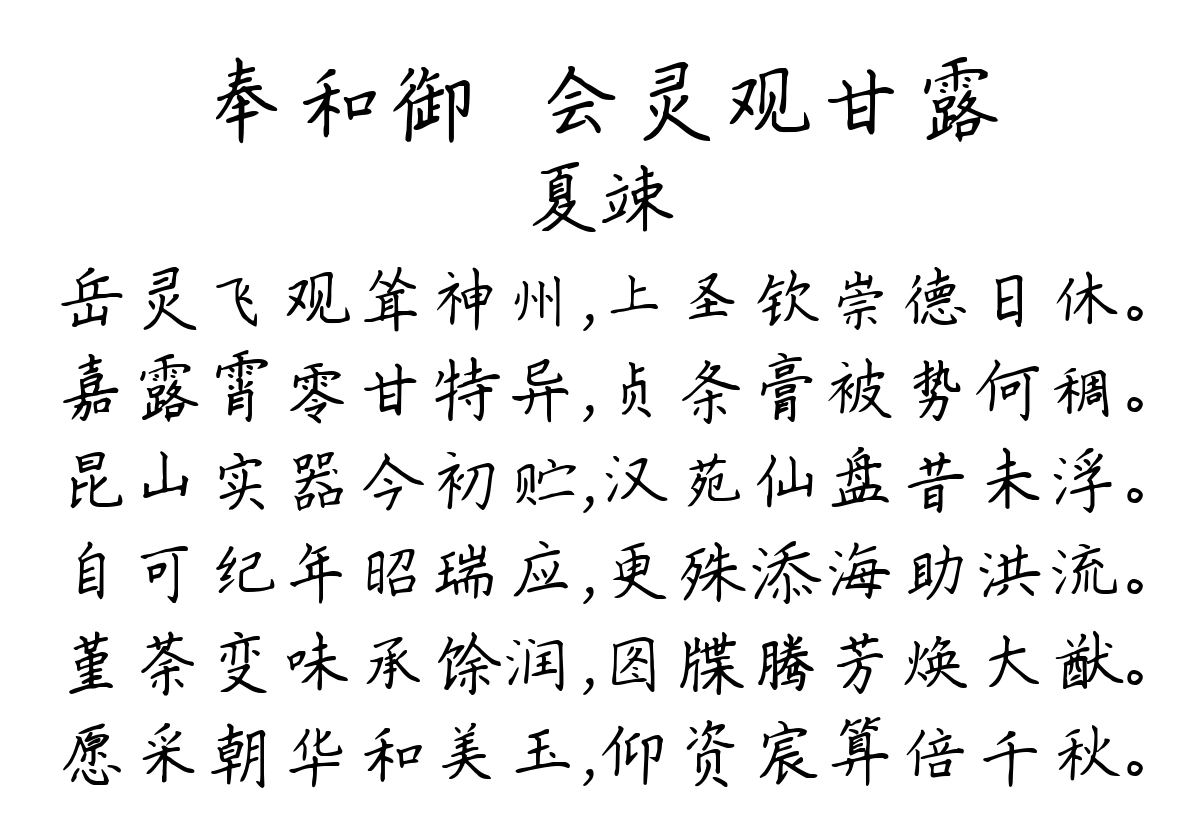 奉和御 会灵观甘露
夏竦
岳灵飞观耸神州,上圣钦崇德日休。
嘉露霄零甘特异,贞条膏被势何稠。
昆山实器今初贮,汉苑仙盘昔未浮。
自可纪年昭瑞应,更殊添海助洪流。
堇荼变味承馀润,图牒腾芳焕大猷。
愿采朝华和美玉,仰资宸算倍千秋。